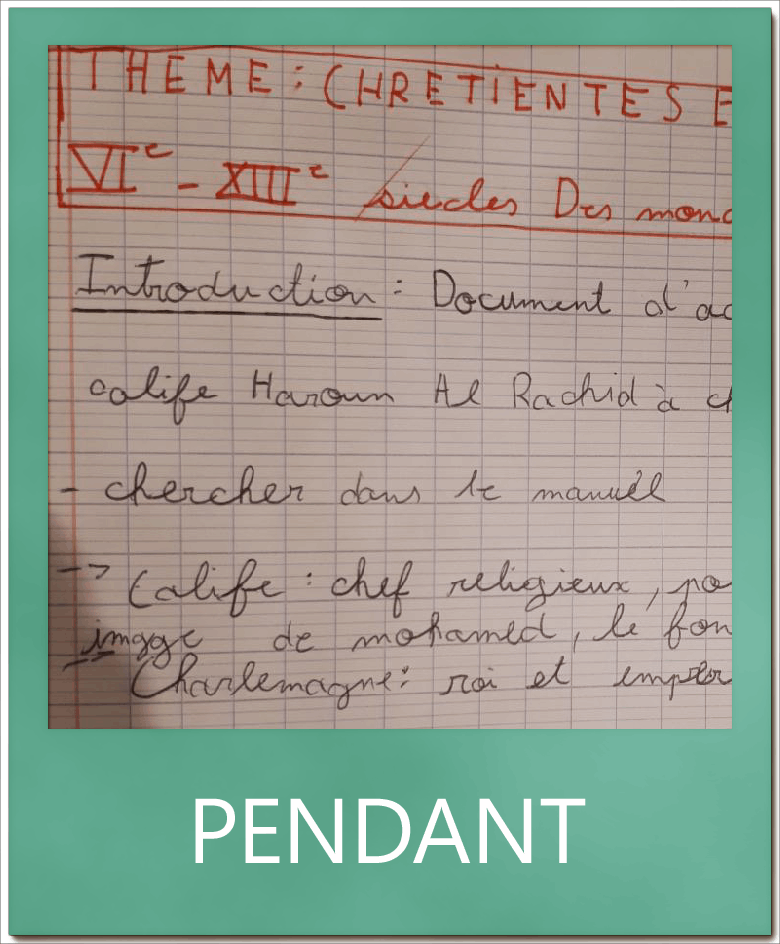 THEME : CHRETIENTES E
VIe - XIIIe siecles Des mond
Introduction : Document d'ac
calife Haroun Al Rachid à ch
- chercher dans le manuel
-> Calife : chef religieux, po
image de mohamed, le fon
Charlemagne : roi et emper
PENDANT